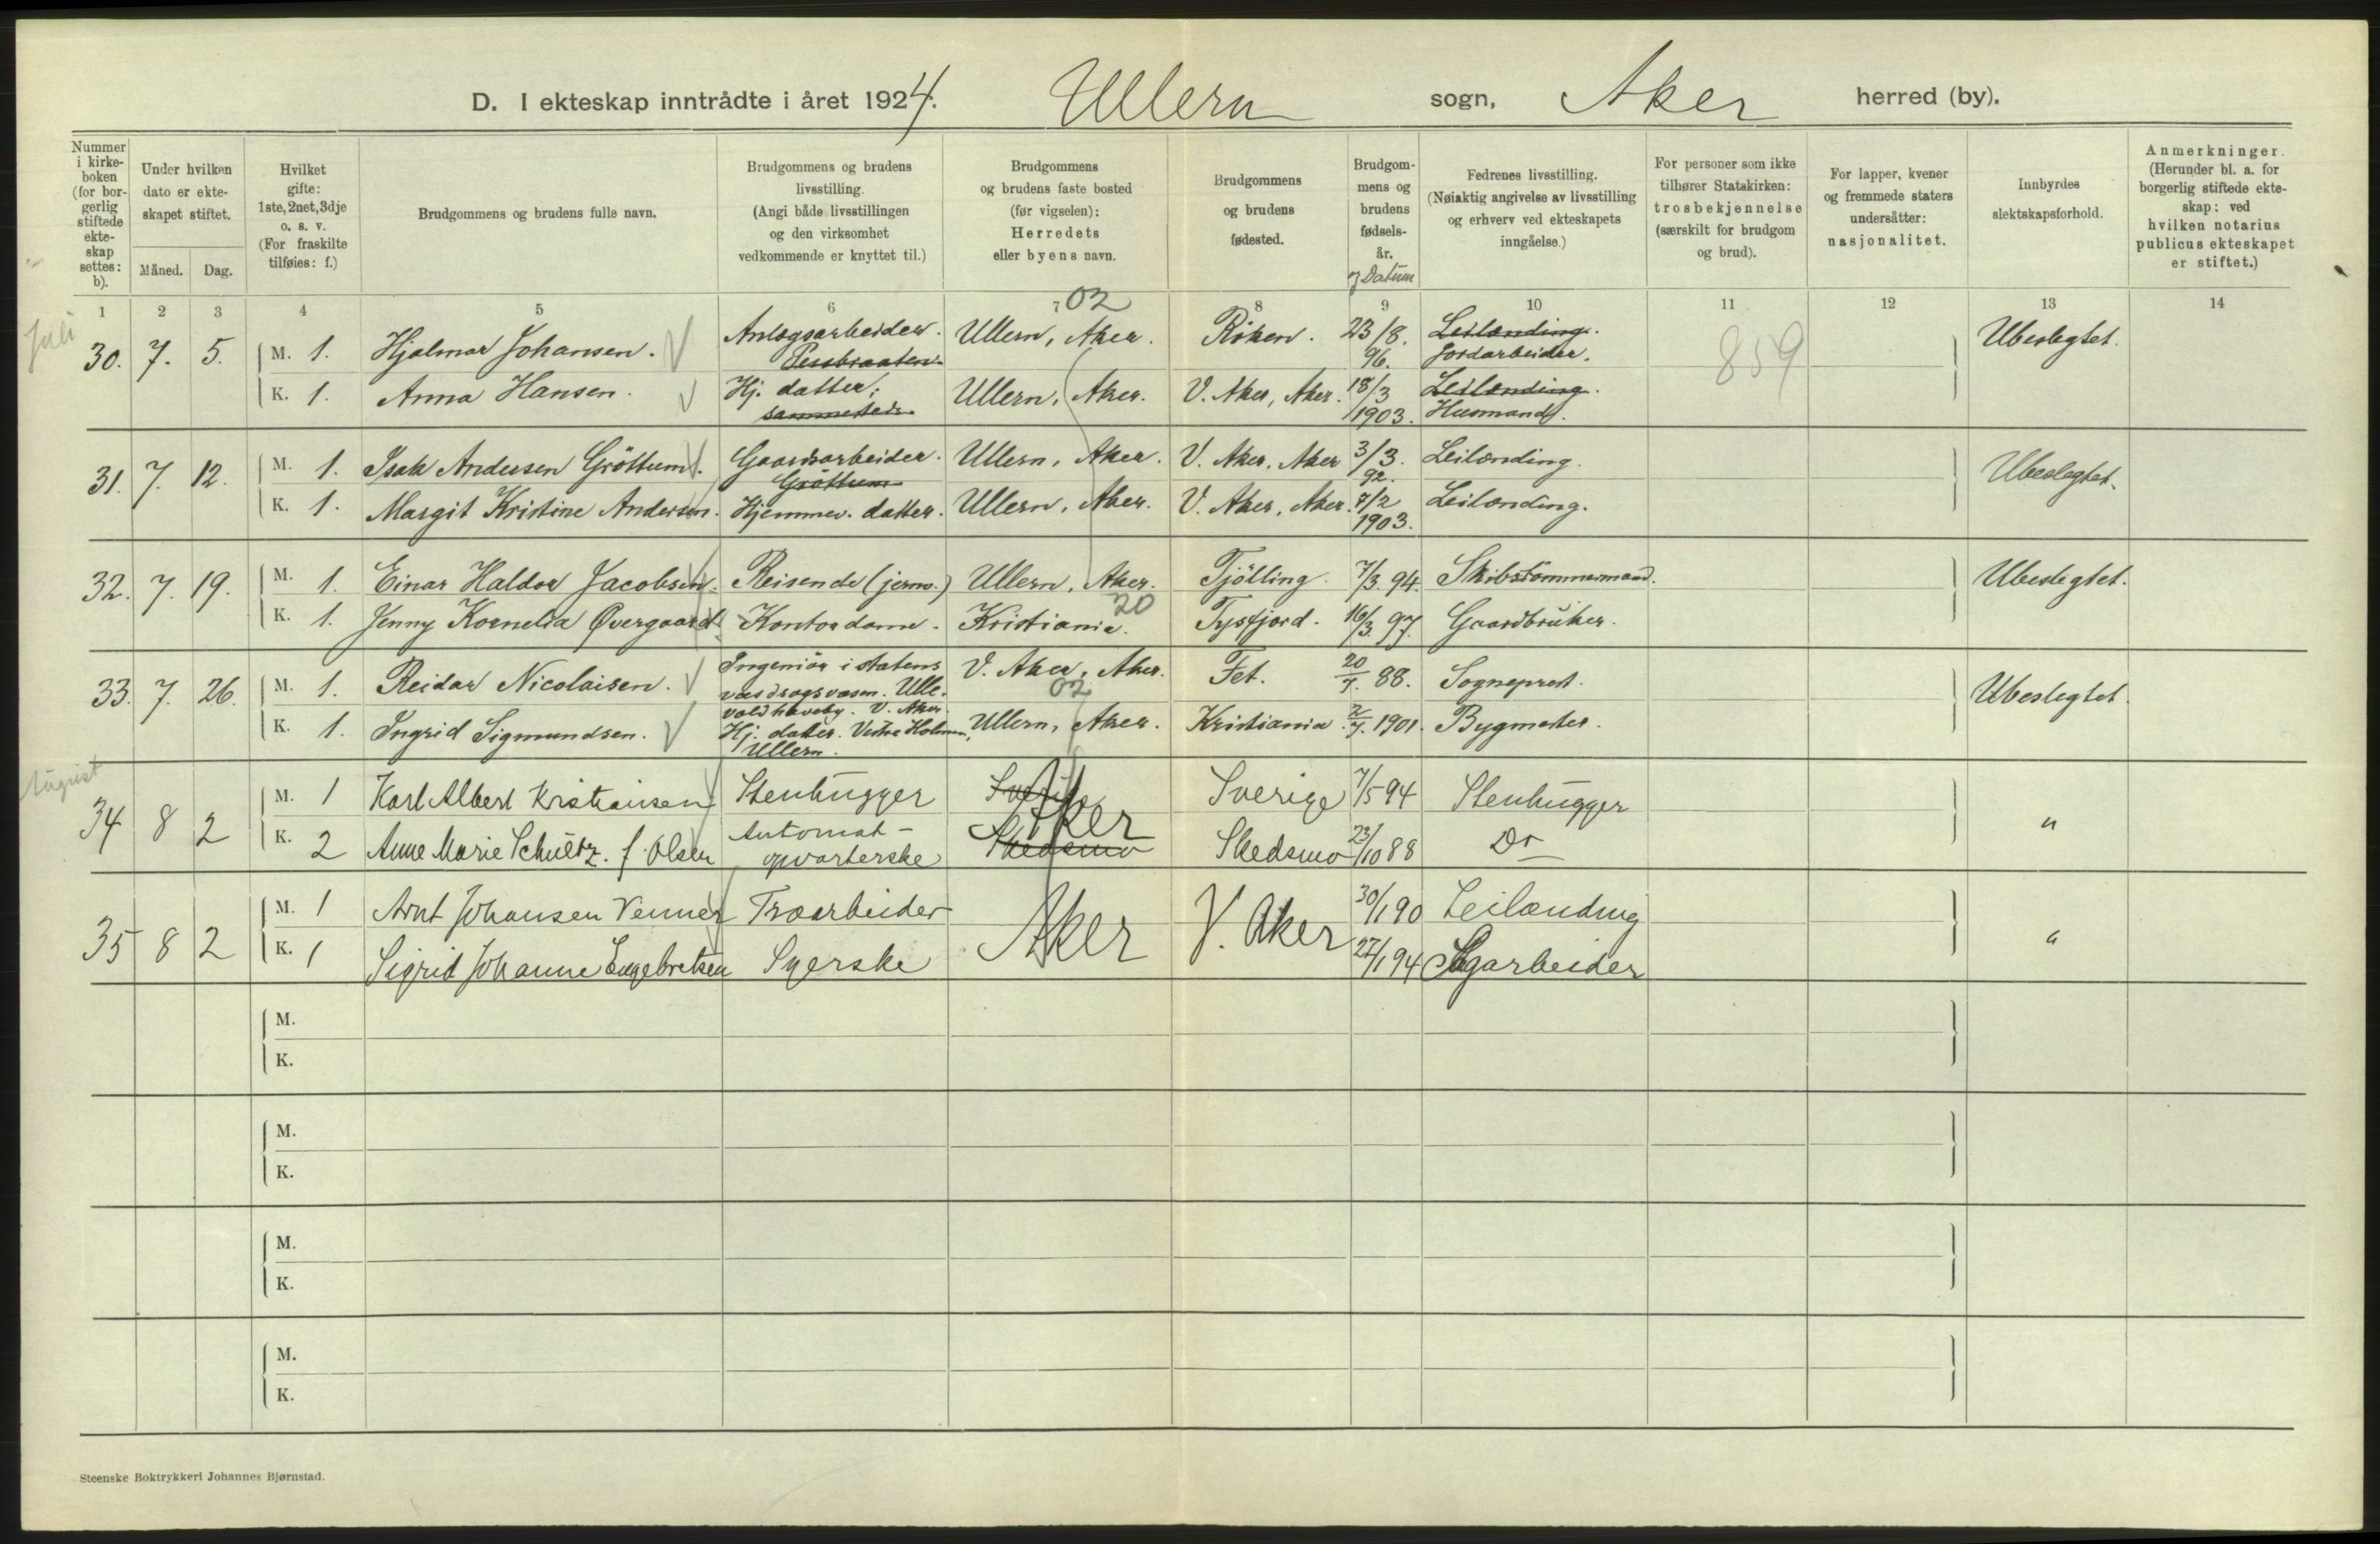 D. I ekteskap inntrådte i året 1924. Ullern sogn, Aker herred (by).
Nummer i kirkeboken (for borgerlig stiftede ekteskap settes: b).
Under hvilken dato er ekteskapet stiftet.
Måned. Dag.
Hvilket gifte: 1ste, 2net, 3dje o. s. v. (For fraskilte tilføies: f.)
Brudgommens og brudens fulle navn.
Brudgommens og brudens livsstilling. (Angi både livsstillingen og den virksomhet vedkommende er knyttet til.)
Brudgommens og brudens faste bosted (før vigselen): Herredets eller byens navn.
Brudgommens og brudens fødested.
Brudgommens og brudens fødselsår. og Datum
Fedrenes livsstilling. (Nøiaktig angivelse av livsstilling og erhverv ved ekteskapets inngåelse.)
For personer som ikke tilhører Statskirken: trosbekjennelse (særskilt for brudgom og brud).
For lapper, kvener og fremmede staters undersåtter: nasjonalitet.
Innbyrdes slektskapsforhold.
Anmerkninger. (Herunder bl. a. for borgerlig stiftede ekteskap: ved hvilken notarius publicus ekteskapet er stiftet.)
1 2 3 4 5 6 7 02 8 9 10 11 12 13 14
Juli
30. 7. 5. M. 1. Hjalmar Johansen. Anlægsarbeider. Ullern, Aker. Röken. 23/8. 96. Leilænding. Jordarbeider. 859 Ubeslegtet.
K. 1. Anna Hansen. Hj. datter; sammesteds. Ullern, Aker. V. Aker, Aker. 18/3 1903. Leilænding. Husmand.
31. 7. 12. M. 1. Isak Andersen Gröttum. Gaardsarbeider. Gröttum Ullern, Aker. V. Aker, Aker 3/3. 92. Leilænding. Ubeslegtet.
K. 1. Margit Kristine Andersen. Hjemmev. datter. Ullern, Aker. V. Aker, Aker. 7/2 1903. Leilænding.
32. 7. 19. M. 1. Einar Haldor Jacobsen. Reisende (jernv.) Ullern, Aker. Tjölling. 7/3. 94. Skibstömmermand. Ubeslegtet.
K. 1. Jenny Kornelia Øvergaard. Kontordame. Kristiania. 20 Tysfjord. 16/3. 97. Gaardbruker.
33. 7. 26. M. 1. Reidar Nicolaisen. Ingeniör i statens vasdragsvæsen. Ullevold haveby. V. Aker. V. Aker, Aker. Fet. 20/7. 88. Sogneprest. Ubeslegtet.
K. 1. Ingrid Sigmundsen. Hj. datter. Vestre Holmen, Ullern. 02 Ullern, Aker. Kristiania. 2/7. 1901. Bygmester.
August
34 8 2 M. 1 Karl Albert Kristiansen Stenhugger Sverige Aker Sverige 7/5 94 Stenhugger "
K. 2 Anne Marie Schultz. f. Olsen Automat-opvarterske Skedsmo Skedsmo 23/10 88 Do
35 8 2 M. 1 Arnt Johansen Venner Træarbeider Aker V. Aker 30/1 90 Leilænding "
K. 1 Sigrid Johanne Engebretsen Syerske 27/1 94 Sagarbeider
M.
K.
M.
K.
M.
K.
M.
K.
Steenske Boktrykkeri Johannes Bjørnstad.